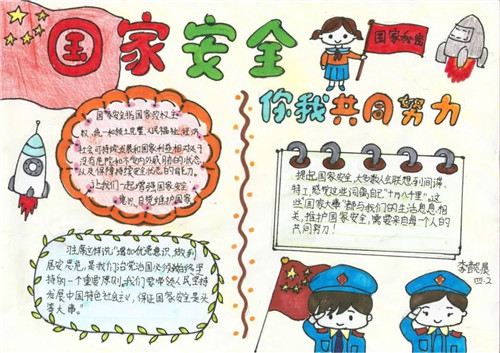 国家安全
国家安全
你我共同努力
国家安全指国家政权、主
权、统一和领土完整、人民福祉、经济
社会可持续发展和国家利益相对处于
没有危险和不受内外威胁的状态,
以及保障持续安全状态的能力。
让我们一起增强国家安全
意识,自觉维护国家
提起国家安全,大多数人会联想到间谍、
特工,感觉这些词离自己“十万八千里”。这
些“国家大事”都与我们的生活息息相
关,维护国家安全,需要来自每一个人的
共同努力!
李懿晨
四.2
习主席这样说:“增加忧患意识,做到
居安思危,是我们治党治国必须始终坚
持的一个重要原则。我们要带领人民坚持
发展中国特色社会主义,保证国家安全是头
等大事。